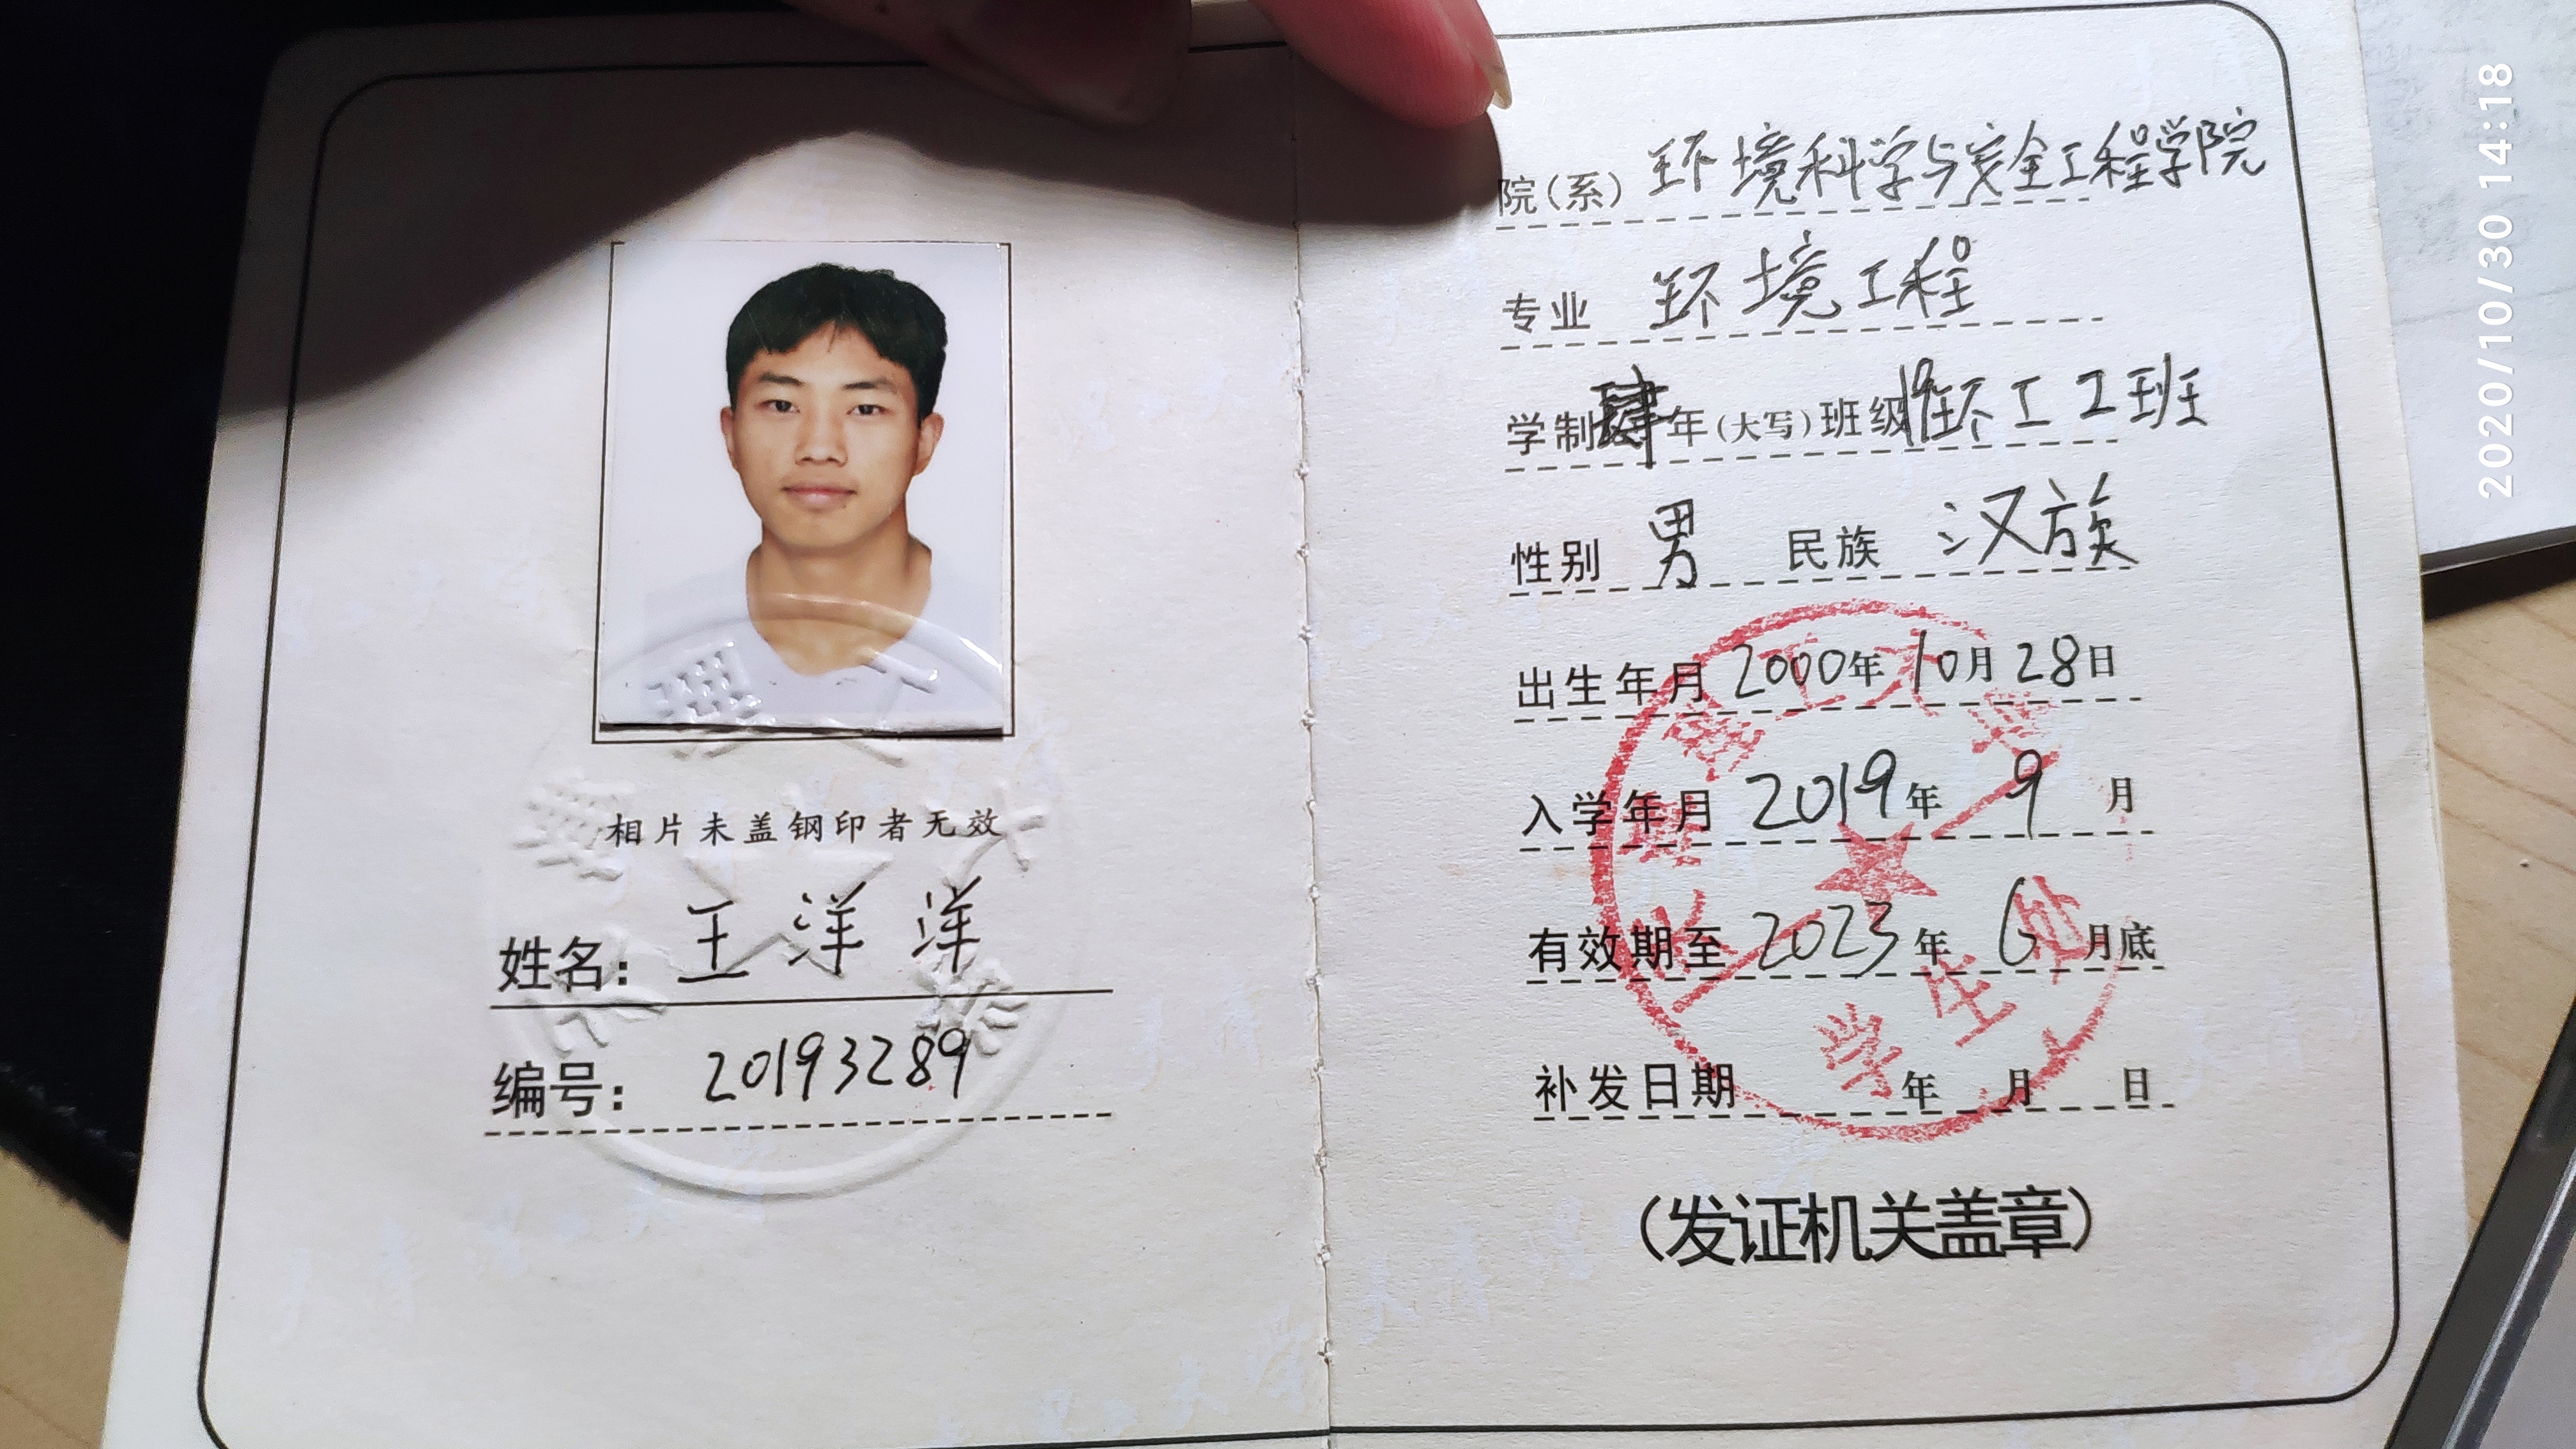 相片未盖钢印者无效
姓名：王洋洋
编号：20193289
院(系) 环境科学与安全工程学院
专业 环境工程
学制肆年(大写)班级19环工2班
性别 男 民族 汉族
出生年月 2000年10月28日
入学年月 2019年 9 月
有效期至 2023年 6 月底
补发日期 年 月 日
学生处
(发证机关盖章)
2020/10/30 14:18